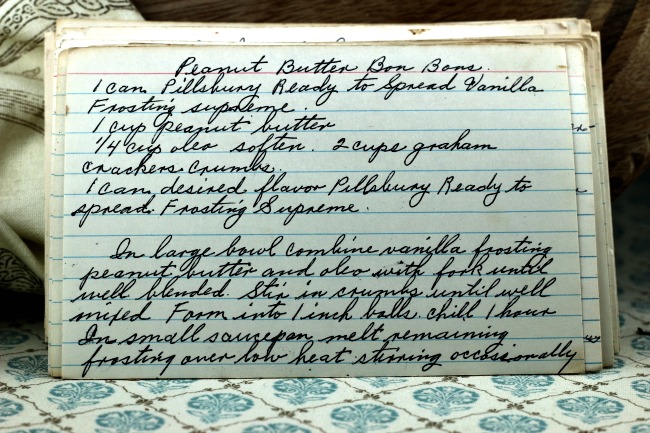 Peanut Butter Bon Bons.
1 can Pillsbury Ready to Spread Vanilla
Frosting supreme.
1 cup peanut butter
1/4 cup oleo soften. 2 cups graham
crackers crumbs.
1 can desired flavor Pillsbury Ready to
spread Frosting Supreme.
In large bowl combine vanilla frosting
peanut butter and oleo with fork until
well blended. Stir in crumbs until well
mixed Form into 1 inch balls. chill 1 hour
In small saucepan melt remaining
frosting over low heat stirring occassionally